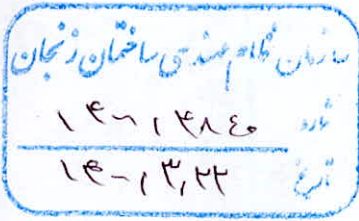 سازمان نظام مهندسی ساختمان زنجان
شماره
تاریخ ۱۴۰۰/۳/۲۲